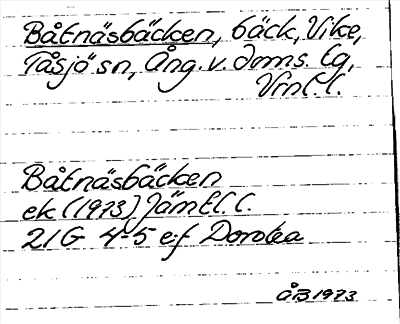 Båtnäsbäcken, bäck, Vike,
Tåsjö sn, Ång. v. doms. lg,
Vrnl. l.
Båtnäsbäcken
ek (1973) Jämtl. l.
21G 4-5 e-f Dorotea
ÅB 1973